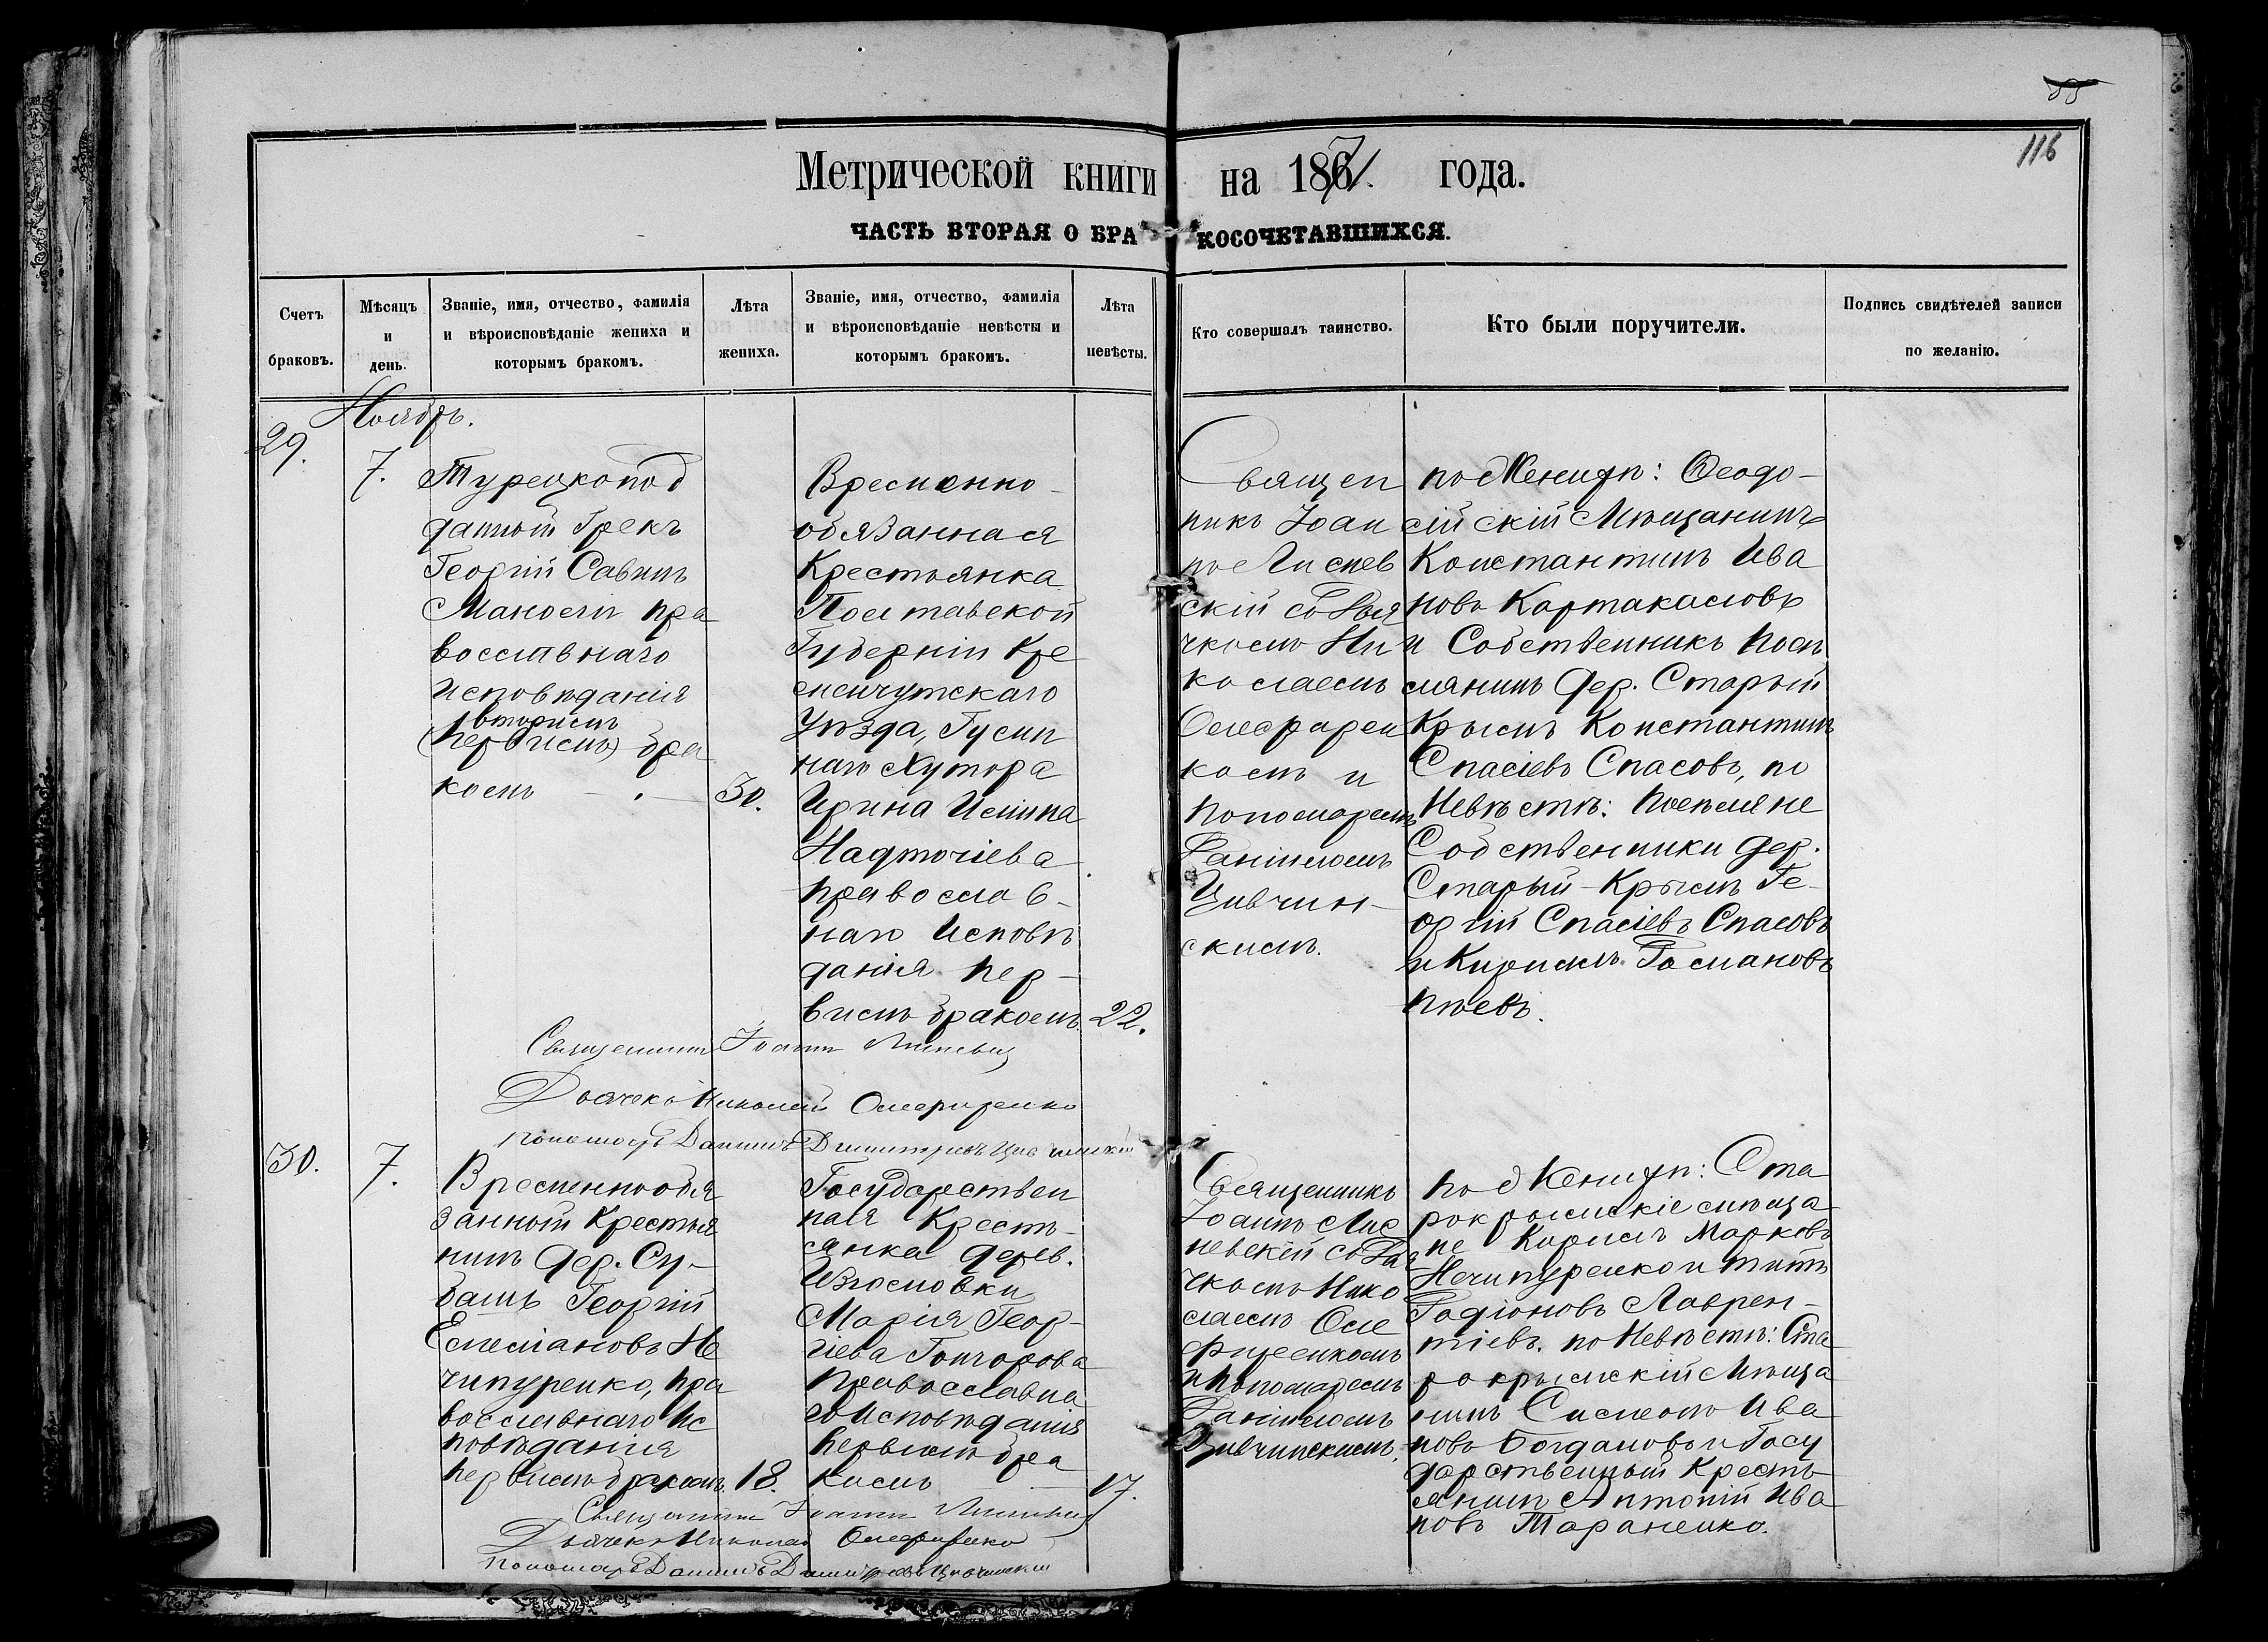 88
116
Метрической книги на 1871. года.
ЧАСТЬ ВТОРАЯ О БРАКОСОЧЕТАВШИХСЯ.
Счетъ браковъ.
Мѣсяцъ и день.
Званіе, имя, отчество, фамилія и вѣроисповѣданіе жениха и которымъ бракомъ.
Лѣта жениха.
Званіе, имя, отчество, фамилія и вѣроисповѣданіе невѣсты и которымъ бракомъ.
Лѣта невѣсты.
Кто совершалъ таинство.
Кто были поручители.
Подпись свидѣтелей записи по желанію.
Ноябрь.
29.
7.
Турецкопод
данный Грекъ
Георгій Савинъ
Маноели пра
вославнаго
исповѣданія
вторымъ
(первымъ) бра
комъ
30.
Временно-
обязанная
Крестьянка
Полтавской
Губерніи Кре
менчугскаго
Уѣзда, Гусин
наго Хутора
Ирина Иміина
Надточіева
православ-
наго Исповѣ
данія пер-
вымъ бракомъ.
22.
Священ
никъ Іоан
нъ
скій съ Дья
чкомъ Ни
колаемъ
Олефирен
комъ и
Пономаремъ
Даніиломъ
Цивчин-
скимъ.
по Женихѣ: Ѳеодо-
сійскій Мѣщанинъ
Константинъ Ива
новъ Картакаловъ
и Собственникъ посе
лянинъ дер. Старый
Крымъ Константинъ
Спасіевъ Спасовъ, по
Невѣстѣ: поселяне
Собственники дер.
Старый-Крымъ Ге-
оргій Спасіевъ Спасовъ
и Кирилъ
Священникъ Іоаннъ
Дьячекъ Николай Олефиренко
пономарь Даніилъ Димитріевъ Цивчинскій
30.
7.
Временнообя
занный Крестья
нинъ дер. Су-
башъ Георгій
Емеліановъ Не
чипуренко, пра
вославнаго Ис
повѣданія
первымъ бракомъ.
18.
Государствен
ная Кресть-
янка дерев.
Изюмовки
Марія Геор-
гіева Гончарова
Православна
го Исповѣданія
первымъ бра
комъ
17.
Священникъ
Іоаннъ Лис
невскій съ Дья
чкомъ Нико
лаемъ Оле
фиренкомъ
и Пономаремъ
Даніиломъ
Цивчинскимъ.
по Женихѣ: Ста
рокрымскіе мѣща
не Кирилъ Марковъ
Нечипуренко и Титъ
Родіоновъ Лаврен-
тіевъ. по Невѣстѣ: Ста
рокрымскій Мѣща
нинъ Симеонъ Ива
новъ Богдановъ и Госу
дарственный Кресть-
янинъ Антоній Ива
новъ Тараненко.
Священникъ Іоаннъ
Дьячекъ Николай Олефиренко
Пономарь Даніилъ Димитріевъ Цивчинскій